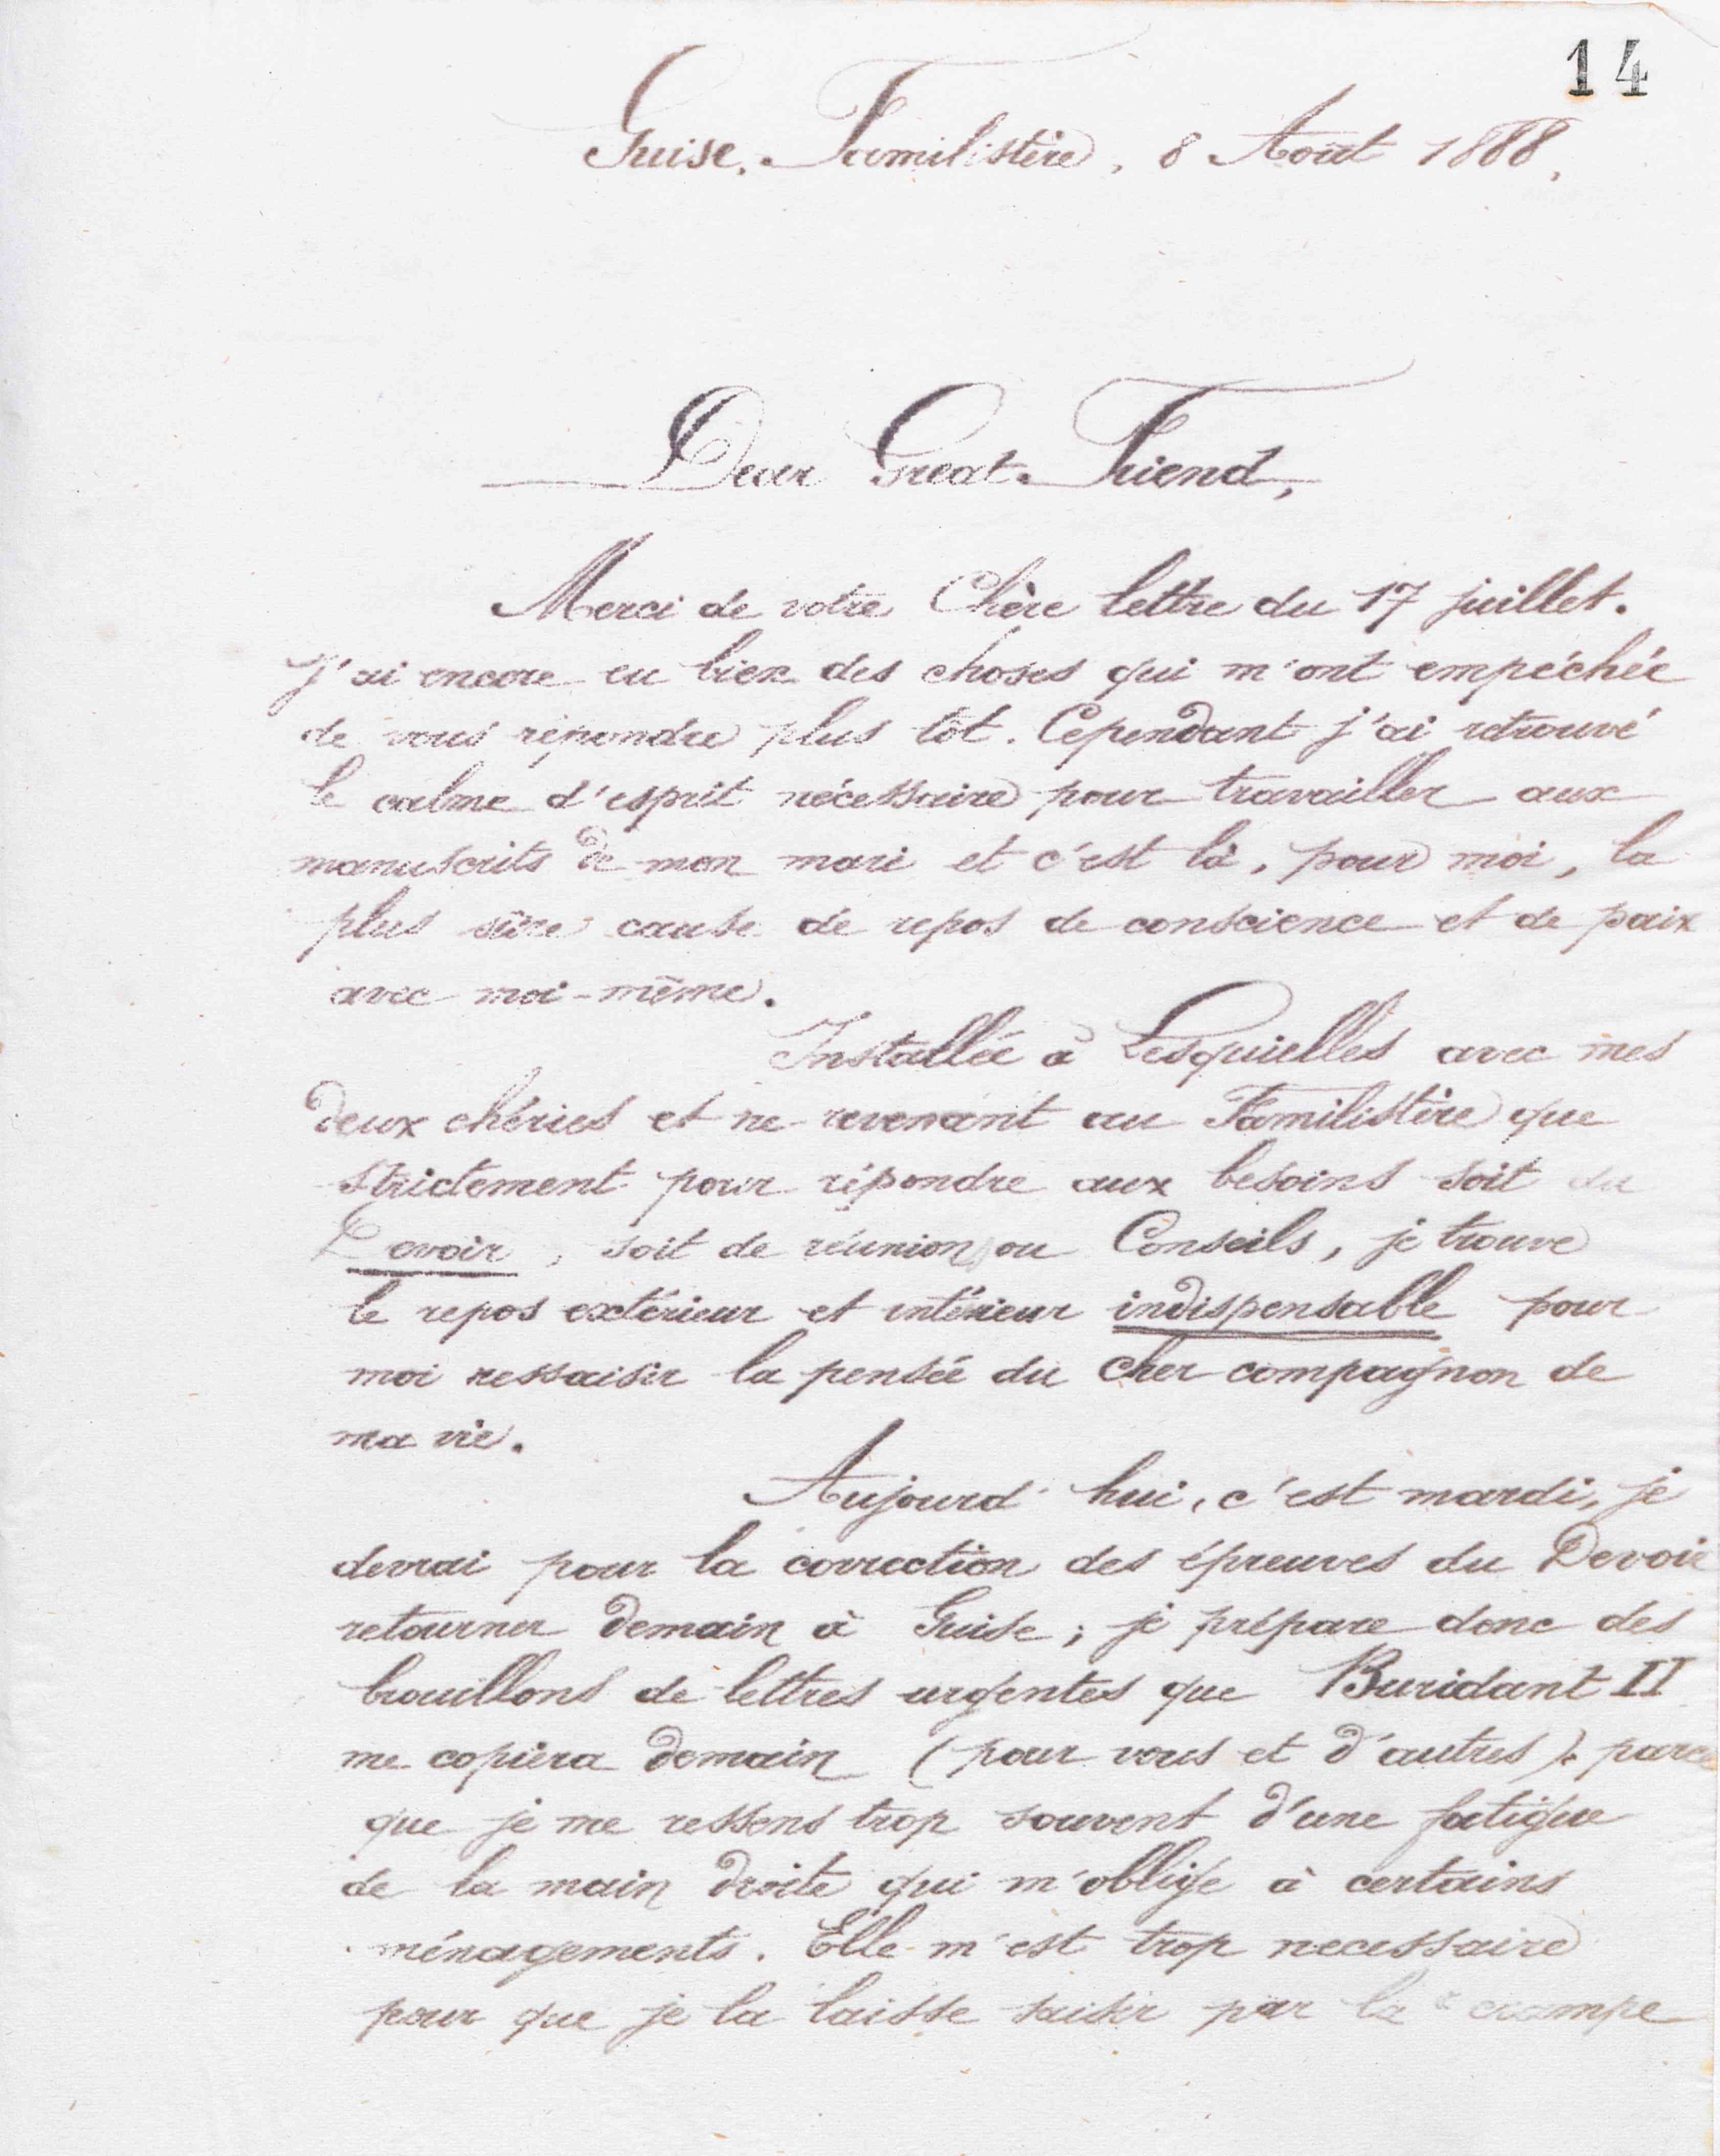 14
Guise, Familistère, 8 Août 1888,
Dear Great Friend,
Merci de votre Chère lettre du 17 juillet.
J'ai encore eu bien des choses qui m'ont empêchée
de vous répondre plus tôt. Cependant j'ai retrouvé
le calme d'esprit nécessaire pour travailler aux
manuscrits de mon mari et c'est là, pour moi, la
plus sûre cause de repos de conscience et de paix
avec moi-même.
Installée à Lesquielles avec mes
deux chéries et ne revenant au Familistère que
strictement pour répondre aux besoins soit du
Devoir, soit de réunion ou Conseils, je trouve
le repos extérieur et intérieur indispensable pour
moi ressaisir la pensée du cher compagnon de
ma vie.
Aujourd'hui, c'est mardi, je
devrai pour la correction des épreuves du Devoir
retourner demain à Guise; je prépare donc des
brouillons de lettres urgentes que Buridant II
me copiera demain (pour vous et d'autres). parce
que je me ressens trop souvent d'une fatigue
de la main droite qui m'oblige à certains
ménagements. Elle m'est trop necessaire
pour que je la laisse saisir par la "crampe